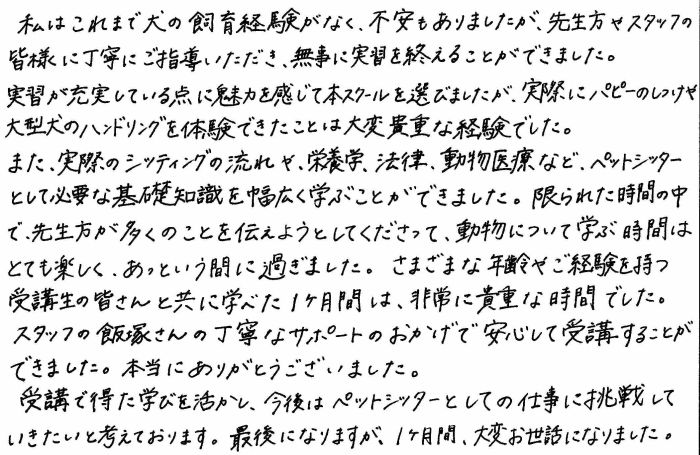 私はこれまで犬の飼育経験がなく、不安もありましたが、先生方やスタッフの
皆様に丁寧にご指導いただき、無事に実習を終えることができました。
実習が充実している点に魅力を感じて本スクールを選びましたが、実際にパピーのしつけや
大型犬のハンドリングを体験できたことは大変貴重な経験でした。
また、実際のシッティングの流れや、栄養学、法律、動物医療など、ペットシッター
として必要な基礎知識を幅広く学ぶことができました。限られた時間の中
で、先生方が多くのことを伝えようとしてくださって、動物について学ぶ時間は
とても楽しく、あっという間に過ぎました。さまざまな年齢やご経験を持つ
受講生の皆さんと共に学べた1ヶ月間は、非常に貴重な時間でした。
スタッフの飯塚さんの丁寧なサポートのおかげで安心して受講することが
できました。本当にありがとうございました。
受講で得た学びを活かし、今後はペットシッターとしての仕事に挑戦して
いきたいと考えております。最後になりますが、1ヶ月間、大変お世話になりました。